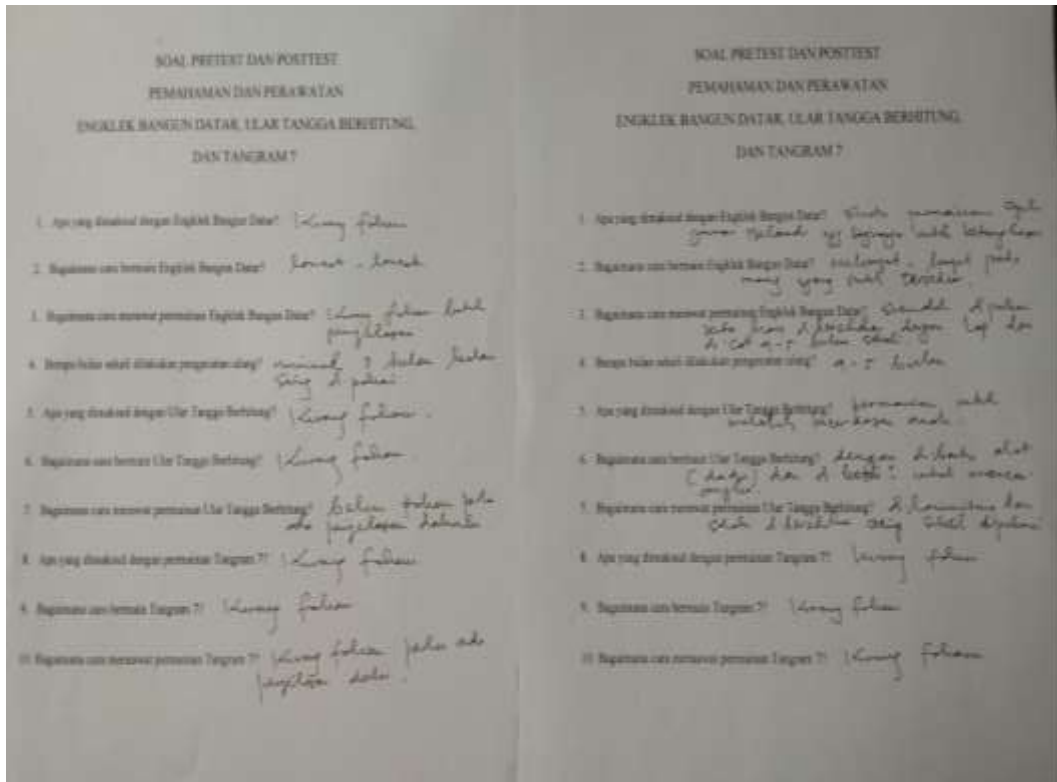 SOAL PRETEST DAN POSTTEST
PEMAHAMAN DAN PERAWATAN
ENGKLEK BANGUN DATAR, ULAR TANGGA BERHITUNG,
DAN TANGRAM 7
1. Apa yang dimaksud dengan Engklek Bangun Datar? Kurang faham
2. Bagaimana cara bermain Engklek Bangun Datar? loncat - loncat
3. Bagaimana cara merawat permainan Engklek Bangun Datar? Kurang faham butuh
penjelasan
4. Berapa bulan sekali dilakukan pengecatan ulang? minimal 3 bulan
sering di pakai
5. Apa yang dimaksud dengan Ular Tangga Berhitung? Kurang faham.
6. Bagaimana cara bermain Ular Tangga Berhitung? Kurang faham.
7. Bagaimana cara merawat permainan Ular Tangga Berhitung? Belum faham perlu
ada penjelasan dahulu
8. Apa yang dimaksud dengan permainan Tangram 7? Kurang faham
9. Bagaimana cara bermain Tangram 7? Kurang faham
10. Bagaimana cara merawat permainan Tangram 7? Kurang faham perlu ada
penjelasan dahulu.
SOAL PRETEST DAN POSTTEST
PEMAHAMAN DAN PERAWATAN
ENGKLEK BANGUN DATAR, ULAR TANGGA BERHITUNG,
DAN TANGRAM 7
1. Apa yang dimaksud dengan Engklek Bangun Datar? permainan
untuk
2. Bagaimana cara bermain Engklek Bangun Datar? pada
yang sudah tersedia.
3. Bagaimana cara merawat permainan Engklek Bangun Datar? Sesudah di pakai
harus di bersihkan dengan lap dan
di cat 4-5 bulan sekali
4. Berapa bulan sekali dilakukan pengecatan ulang? 4-5 bulan
5. Apa yang dimaksud dengan Ular Tangga Berhitung? permainan untuk
melatih anak.
6. Bagaimana cara bermain Ular Tangga Berhitung? dengan dibantu alat
(dadu) dan di untuk
angka.
7. Bagaimana cara merawat permainan Ular Tangga Berhitung? dan
dipakai
8. Apa yang dimaksud dengan permainan Tangram 7? Kurang faham
9. Bagaimana cara bermain Tangram 7? Kurang faham
10. Bagaimana cara merawat permainan Tangram 7? Kurang faham